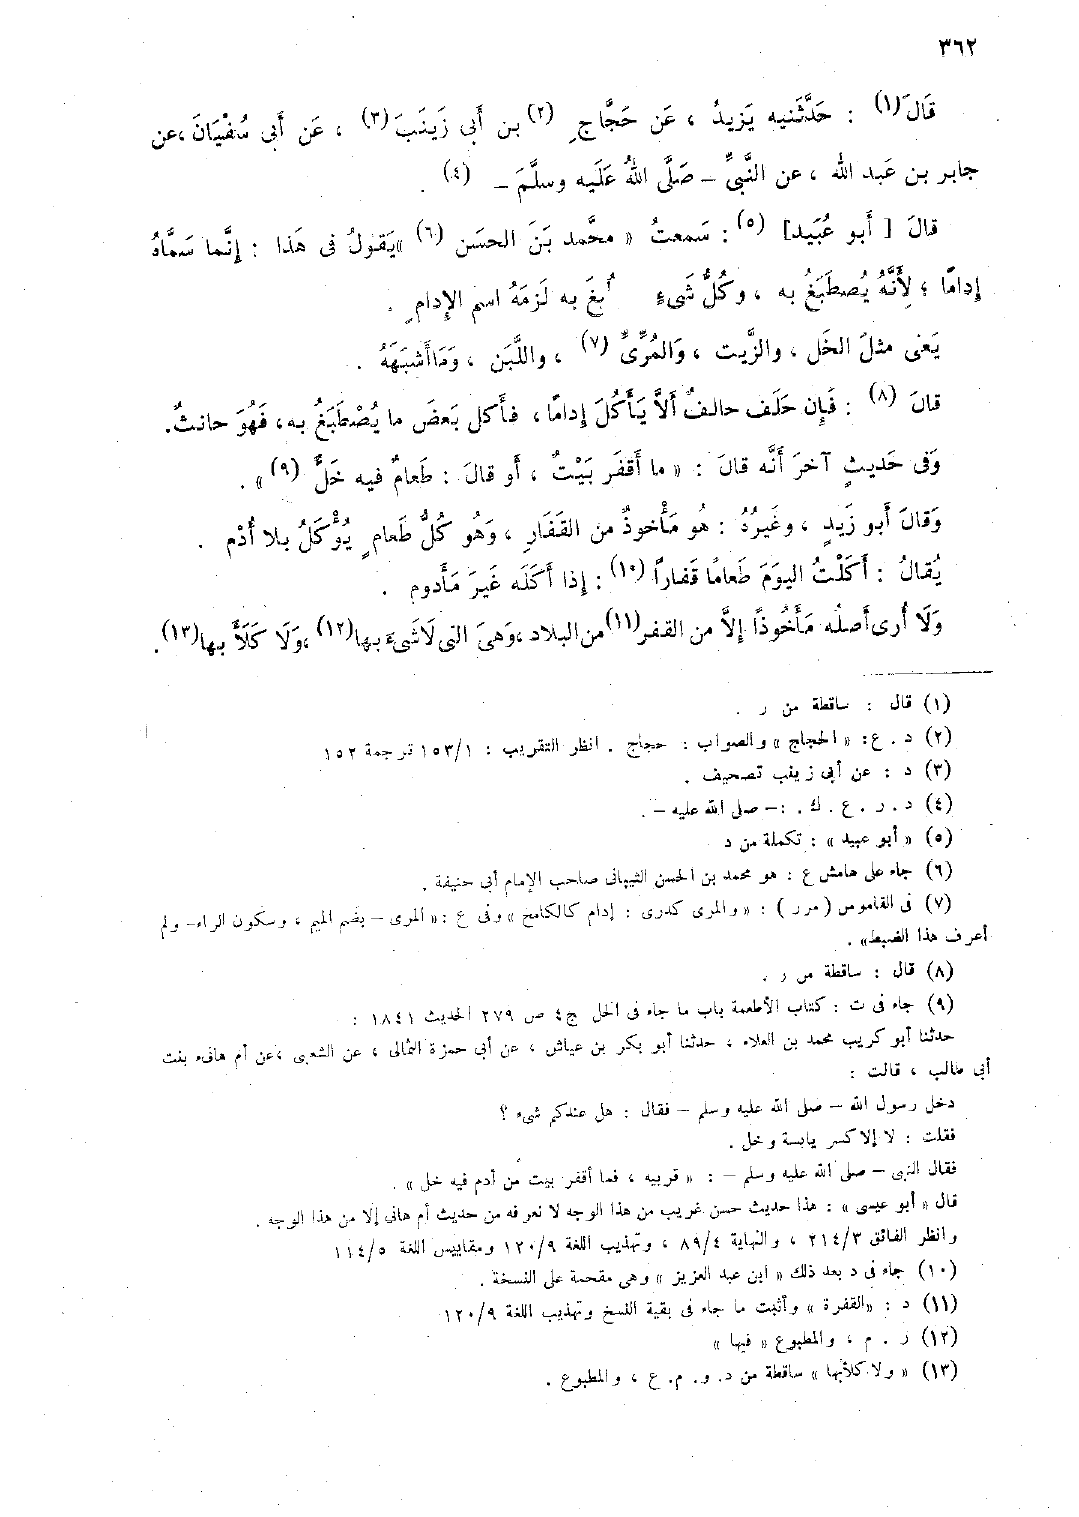 ٣٦٢
قَالَ (١) : حَدَّثَنيه يَزيدُ ، عَن حَجَّاجٍ (٢) بن أَبى زَينَبَ (٣) ، عَن أَبى سُفْيَانَ ،عن
جابر بن عَبد الله ، عن النَّبىِّ – صَلَّى اللهُ عَلَيه وسلَّمَ – (٤) .
قالَ [ أَبو عُبَيد] (٥) : سَمعتُ « محَّمد بَنَ الحسَن (٦) »يَقولُ فى هَذا : إنَّما سَمَّاهُ
إدامًا ؛ لِأَنَّهُ يُصطَبَغُ به ، وكُلُّ شَىءٍ ُبغَ به لَزمَهُ اسم الإدامِ .
يَعنى مثلَ الخَل ، والزَّيت ، وَالمُرِّىِّ (٧) ، واللَّبَن ، وَمَاأَشبَهَهُ .
قالَ (٨) : فَإِن حَلَف حالفٌ أَلاَّ يَأكُلَ إدامًا، فأَكل بَعضَ ما يُصْطَبَغُ به، فَهُوَ حانثٌ.
وَفى حَديثٍ آخرَ أَنَّه قالَ : « ما أَقفَر بَيْتٌ ، أَو قالَ : طَعامٌ فيه خَلٌّ (٩) » .
وَقالَ أَبو زَيدٍ ، وغَيرُهُ : هُو مَأْخوذٌ من القَفَارِ ، وَهُو كُلُّ طَعامٍ يُؤْكَلُ بلا أُدْم .
يُقالُ : أَكَلْتُ اليومَ طَعامًا قَفاراً (١٠) : إذا أَكَلَه غَيرَ مَأدومٍ .
وَلَا أُرى أَصلُه مَأخُوذًا إلاَّ من القفر (١١) من البلاد ،وَهىَ التى لَاشَىءَ بها (١٢) ،وَلَا كَلَأَ بها (١٣) .
(١) قال : ساقطة من ر .
(٢) د . ع: « الحجاج » والصواب : حجاج . انظر التقريب : ١٥٣/١ ترجمة ١٥٢
(٣) د : عن أبى زينب تصحيف .
(٤) د . ر . ع . ك . :– صلى الله عليه – .
(٥) « أبو عبيد » : تكملة من د
(٦) جاء على هامش ع : هو محمد بن الحسن الشيبانى صاحب الإمام أبى حنيفة .
(٧) فى القاموس ( مرر ) : « والمرى كدرى : إدام كالكامخ » وفى ع : « المرى – بضم الميم ، وسكون الراء– ولم
أعرف هذا الضبط» .
(٨) قال : ساقطة من ر .
(٩) جاء فى ت : كتاب الأطعمة باب ما جاء فى الخل ج٤ ص ٢٧٩ الحديث ١٨٤١ :
حدثنا أبو كريب محمد بن العلاء ، حدثنا أبو بكر بن عياش ، عن أبى حمزة الثمالى ، عن الشعبى ،عن أم هانىء بنت
أبى طالب ، قالت :
دخل رسول الله – صلى الله عليه وسلم – فقال : هل عندكم شىء ؟
فقلت : لا إلا كسر يابسة وخل .
فقال النبى – صلى الله عليه وسلم – : « قربيه ، فما أقفر بيت من أدم فيه خل » .
قال « أبو عيسى » : هذا حديث حسن غريب من هذا الوجه لا نعرفه من حديث أم هانى إلا من هذا الوجه .
وانظر الفائق ٢١٤/٣ ، والنهاية ٨٩/٤ ، وتهذيب اللغة ١٢٠/٩ ومقاييس اللغة ١١٤/٥
(١٠) جاء فى د بعد ذلك « ابن عبد العزيز » وهى مقحمة على النسخة .
(١١) د : «القفرة » وأثبت ما جاء فى بقية النسخ وتهذيب اللغة ١٢٠/٩
(١٢) ر . م ، والمطبوع « فيها »
(١٣) « ولا كلأبها » ساقطة من د. و. م. ع ، والمطبوع .